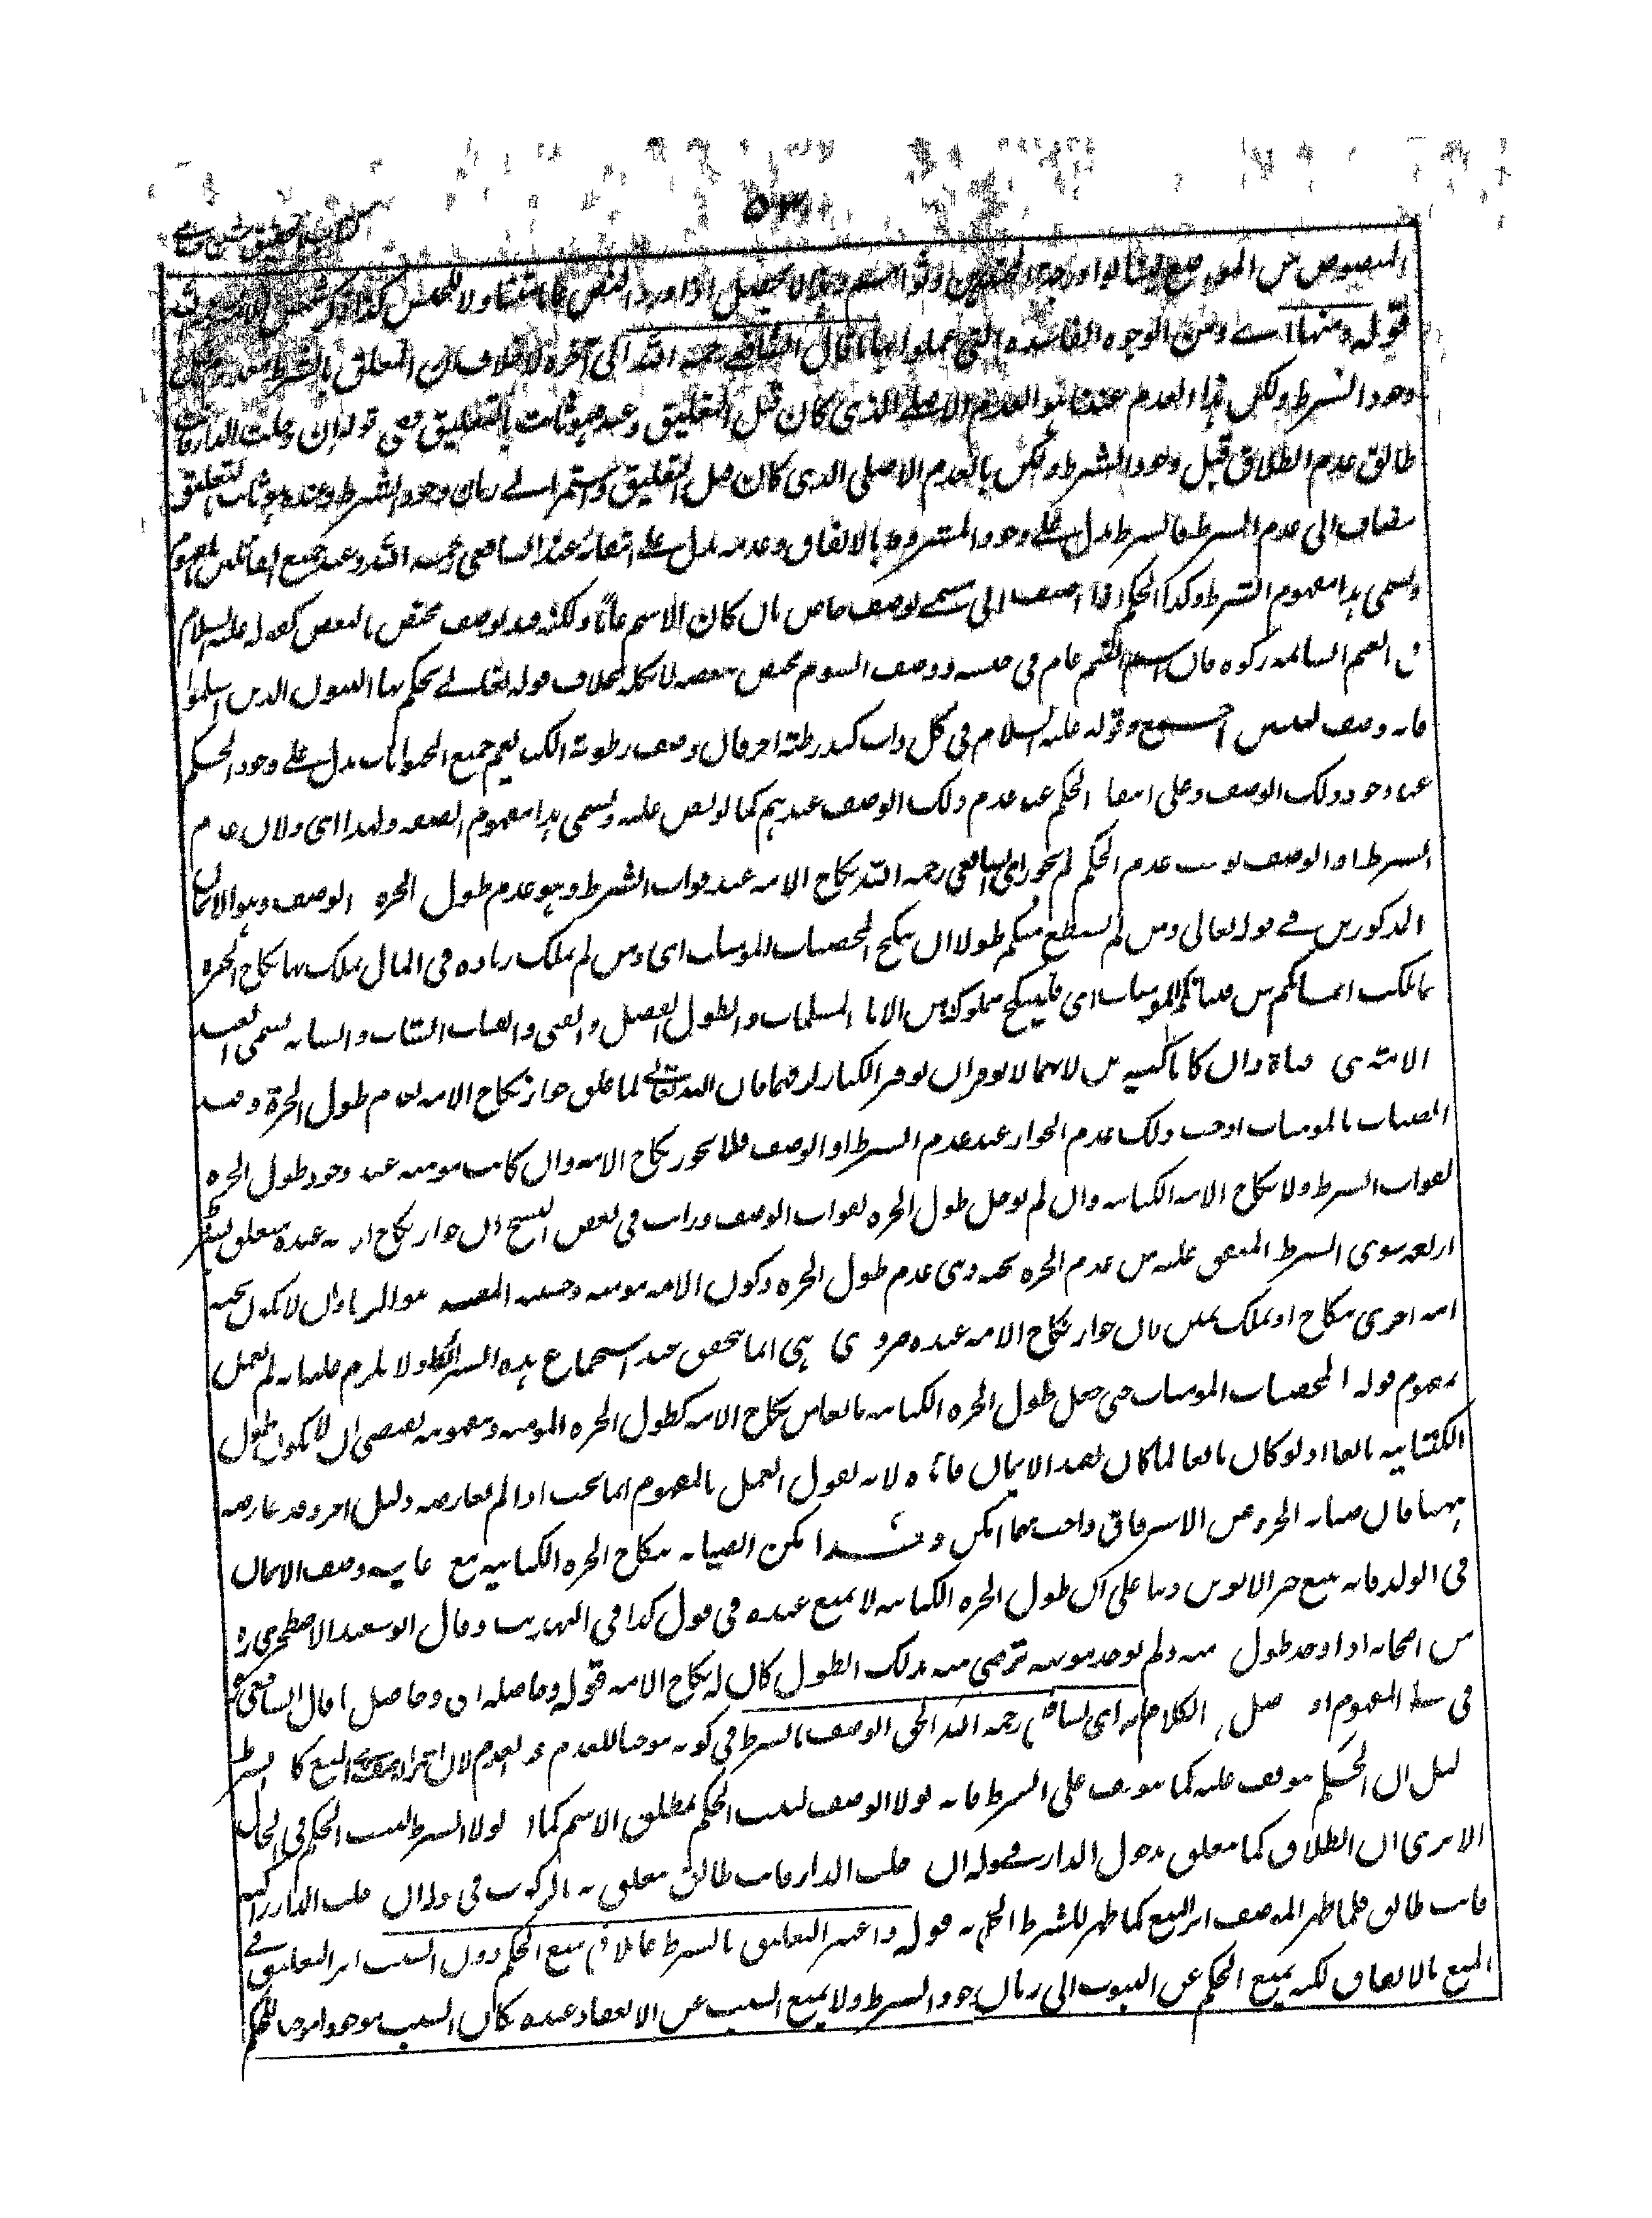 ۵۳
قوله ومنها اے ومن الوجوه الفاسده التى عملوا بها ما قال الشافعے رحمه الله الى آخره لا خلاف ان المعلق بالشرط معدوم قبل
وجود الشرط ولكن هذا العدم عندنا هو العدم الاصلے الذى كان قبل التعليق وعنده هو ثابت بالتعليق ففى قوله ان دخلت الدار فانت
طالق عدم الطلاق قبل وجود الشرط ولكن بالعدم الاصلى الذى كان قبل التعليق واستمر الے زمان وجود الشرط وعنده هو ثابت بالتعليق
مضاف الى عدم الشرط فالشرط يدل علے وجود المشروط بالاتفاق وعدمه يدل علے انتفائه عند الشافعى رحمه الله وعند جميع القائلين بالمفهوم
ويسمى هذا مفهوم الشرط وكذا الحكم اذا اضيف الى مسمے بوصف خاص بان كان الاسم عاما ولكنه قيد بوصف مختص بالبعض كقوله عليه السلام
فى الغنم السائمة زكوة فان اسم الغنم عام فى جنسه ووصف السوم يختص ببعضه لا بكله بخلاف قوله تعالے يحكم بها النبيون الذين اسلموا
فانه وصف للنبيين اجمع وقوله عليه السلام فى كل ذات كبد رطبة اجر فان وصف رطوبة الكبد يعم جميع الحيوانات يدل علے وجود الحكم
عند وجود ذلك الوصف وعلى انتفا الحكم عند عدم ذلك الوصف عندهم كما لو نص عليه ويسمى هذا مفهوم الصفه ولهذا اى ولان عدم
الشرط او الوصف يوجب عدم الحكم لم يجوز الشافعى رحمه الله نكاح الامه عند فوات الشرط وهو عدم طول الحره الوصف وهو الايمان
المذكورين فے قوله تعالى ومن لم يستطع منكم طولا ان ينكح المحصنات المومنات اى ومن لم يملك زياده فى المال يملك بها نكاح الحره
مما ملكت ايمانكم من فتياتكم المومنات اى فلينكح مملوكة من الاما المسلمات والطول الفضل والغنى والفتيات الشابات تسمى العبد
الامة فتى وفتاة وان كانا كبيرين لانهما لا يوقران توقير الكبار لرقهما فان الله تعالى لما علق جواز نكاح الامه بعدم طول الحرة وقيد
الفتيات بالمومنات اوجب ذلك عدم الجواز عند عدم الشرط او الوصف فلا يجوز نكاح الامه وان كانت مومنه عند وجود طول الحره
لفوات الشرط ولا نكاح الامه الكتابيه وان لم يوجد طول الحره لفوات الوصف ورايت فى بعض النسخ ان جواز نكاح الامه عنده متعلق بشرائط
اربعه سوى الشرط المتفق عليه من عدم الحره تحته وهى عدم طول الحره وكون الامه مومنه وخشيه العنت وان لا يكون تحته
امه اخرى بنكاح او بملك يمين فان جواز نكاح الامه عنده ضرورى انما يتحقق عند استجماع هذه الشرائط ولا يلزم عليه انه لم يعمل
بمفهوم قوله المحصنات المومنات حتى جعل طول الحره الكتابيه مانعا من نكاح الامه كطول الحره المومنه ومفهومه يقتضى ان لا يكون طول
الكتابيه مانعا اذ لو كان مانعا لما كان لقيد الايمان فائدة لانه يقول العمل بالمفهوم انما يجب اذا لم يعارضه دليل اخر وقد عارضه
ههنا فان صيانه الجزء من الاسترقاق واجب مهما امكن وقد امكن الصيانه بنكاح الحره الكتابيه مع رعايه وصف الايمان
فى الولد فانه يتبع خير الابوين دينا على ان طول الحره الكتابيه لا يمنع عنده فى قول كذا فى التهذيب وقال ابو سعيد الاصطخرى ره
من اصحابه اذا وجد طول ولم يوجد مومنه ترضى منه بذلك الطول كان له نكاح الامه قوله وحاصله اى وحاصل ما قال الشافعى
الكلام اى الشافعى رحمه الله الحق الوصف بالشرط فى كونه موجبا للعدم عند العدم
ان الحكم يتوقف عليه كما يتوقف على الشرط فانه لولا الوصف لثبت الحكم بمطلق الاسم كما لولا الشرط لثبت الحكم فى الحال
الا ترى ان الطلاق كما يتعلق بدخول الدار فى قوله ان دخلت الدار فانت طالق يتعلق بالركوب فى قوله ان دخلت الدار راكبة
فانت طالق فلما ظهر للوصف اثر المنع كما ظهر للشرط الحق به قوله واعتبر التعليق بالشرط عاملا فى منع الحكم دون السبب اثر التعليق فے
المنع بالاتفاق لكنه يمنع الحكم عن الثبوت الى زمان وجود الشرط ولا يمنع السبب عن الانعقاد عنده كان السبب موجودا موجبا للحكم